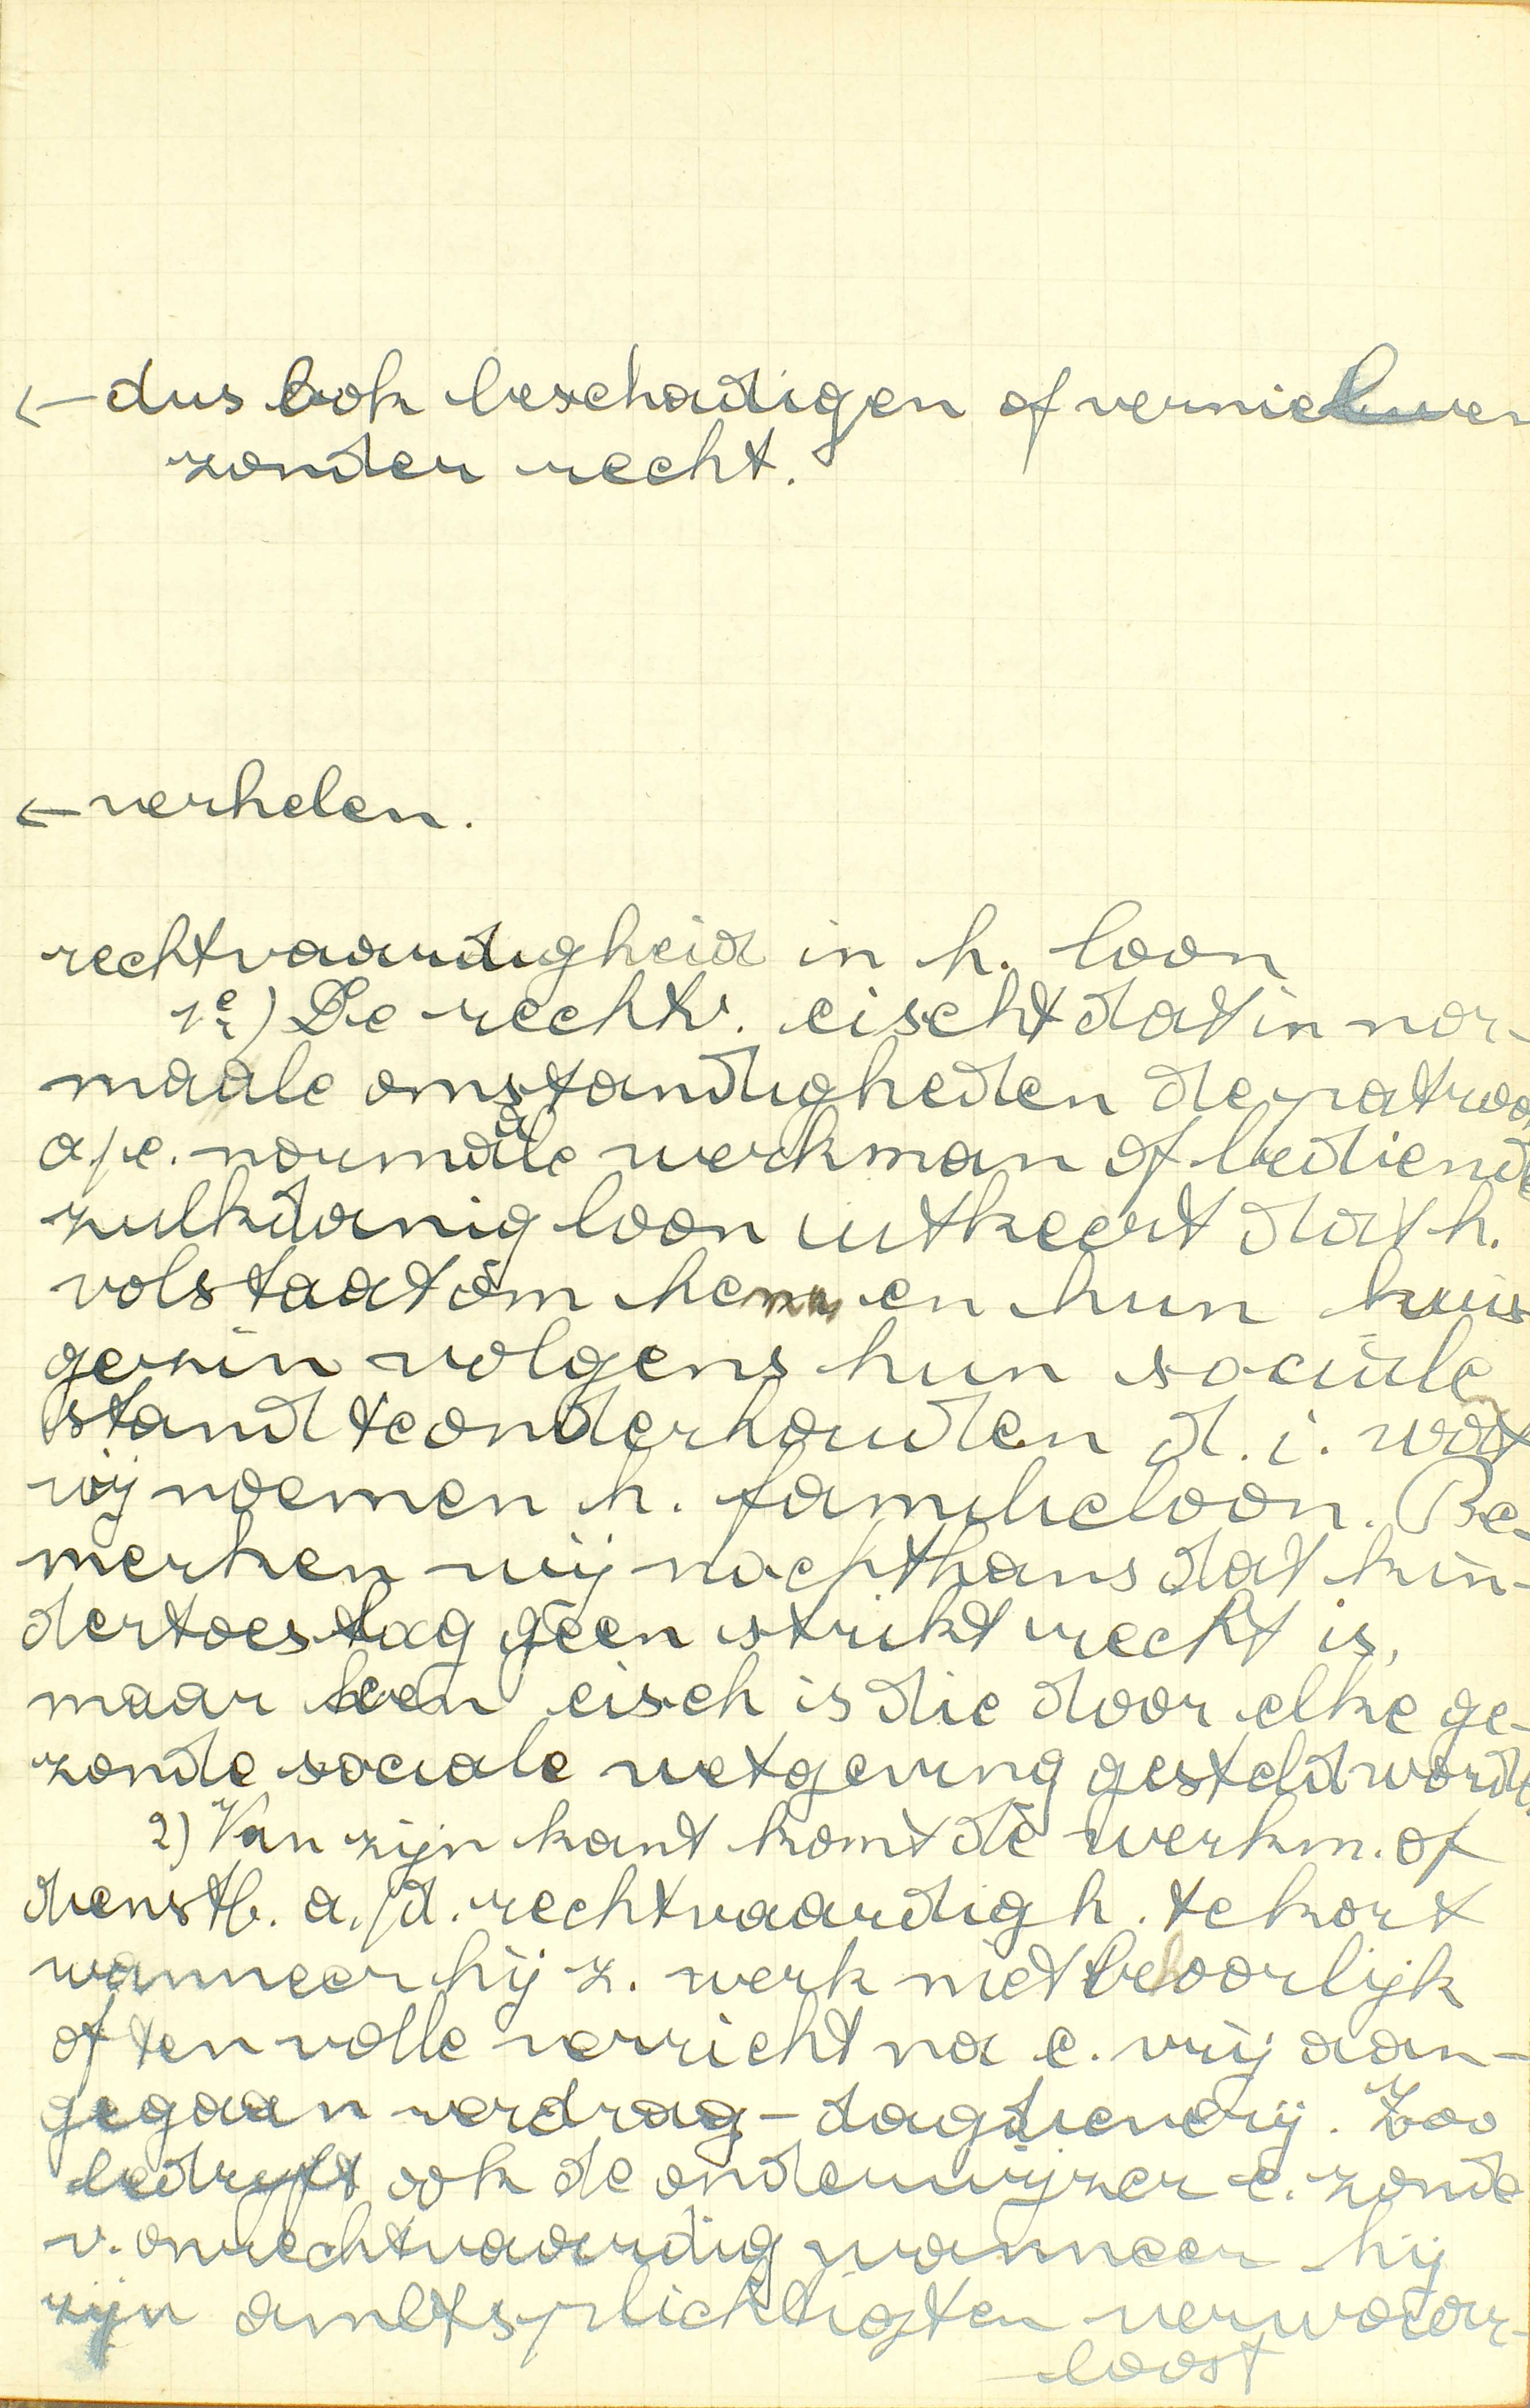 ← dus ook beschadigen of vernielen
zonder recht.
← verhelen.
rechtvaardigheid in h. loon
1e) De rechtv. eischt dat in nor-
maale omstandigheden de patroo
a/e. normale werkman of bediende
zulkdanig loon uitkeert dat h.
volstaat om hem en hun huis
gezin volgens hun sociale
stand te onderhouden d.i. wat
wij noemen h. familieloon. Be-
merken wij nochthans dat kin-
dertoeslag geen strikt recht is,
maar een eisch is die door elke ge-
zonde sociale wetgeving gesteld wordt.
2) Van zijn kant komt de werkm. of
dienstb. a./d. rechtvaardigh. te kort
wanneer hij z. werk niet behoorlijk
of ten volle verricht na e. vrij aan-
gegaan verdrag - dagdieverij. Zoo
bedrijft ook de onderwijzer e. zonde
v. onrechtvaardig wanneer hij
zijn ambtsplichtigten verwaar-
loost